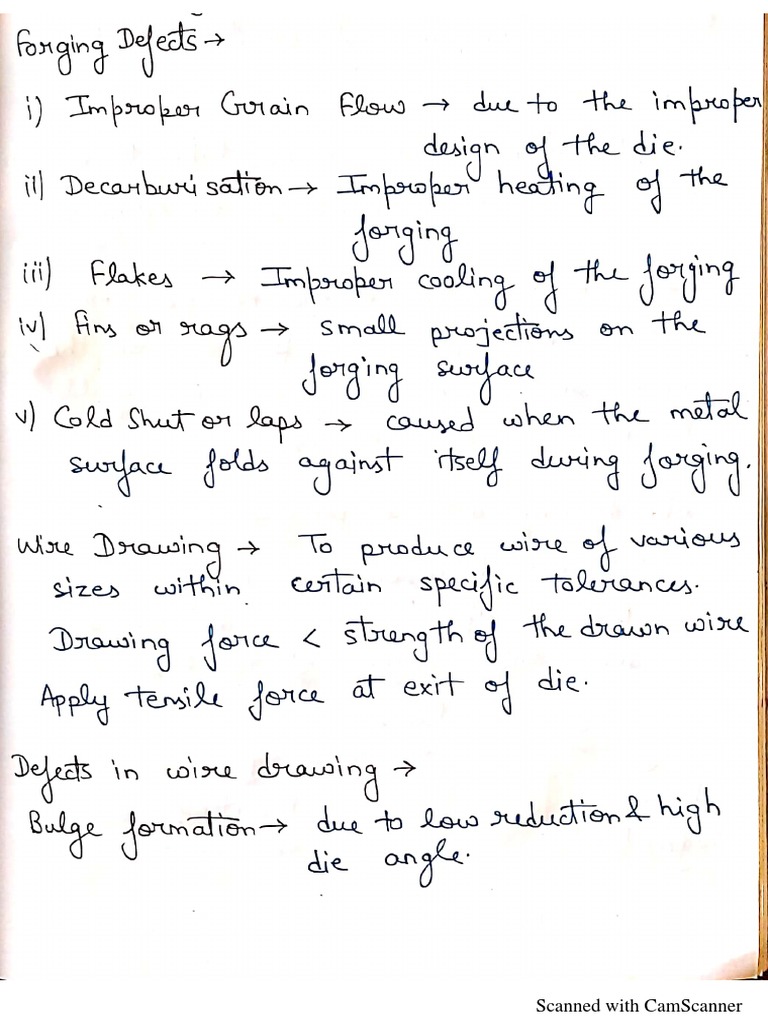 Forging Defects →
i) Improper Grain Flow → due to the improper
design of the die.
ii) Decarburisation → Improper heating of the
forging
iii) Flakes → Improper cooling of the forging
iv) Fins or rags → small projections on the
forging surface
v) Cold Shut or laps → caused when the metal
surface folds against itself during forging.
Wire Drawing → To produce wire of various
sizes within certain specific tolerances.
Drawing force < strength of the drawn wire
Apply tensile force at exit of die.
Defects in wire drawing →
Bulge formation → due to low reduction & high
die angle.
Scanned with CamScanner